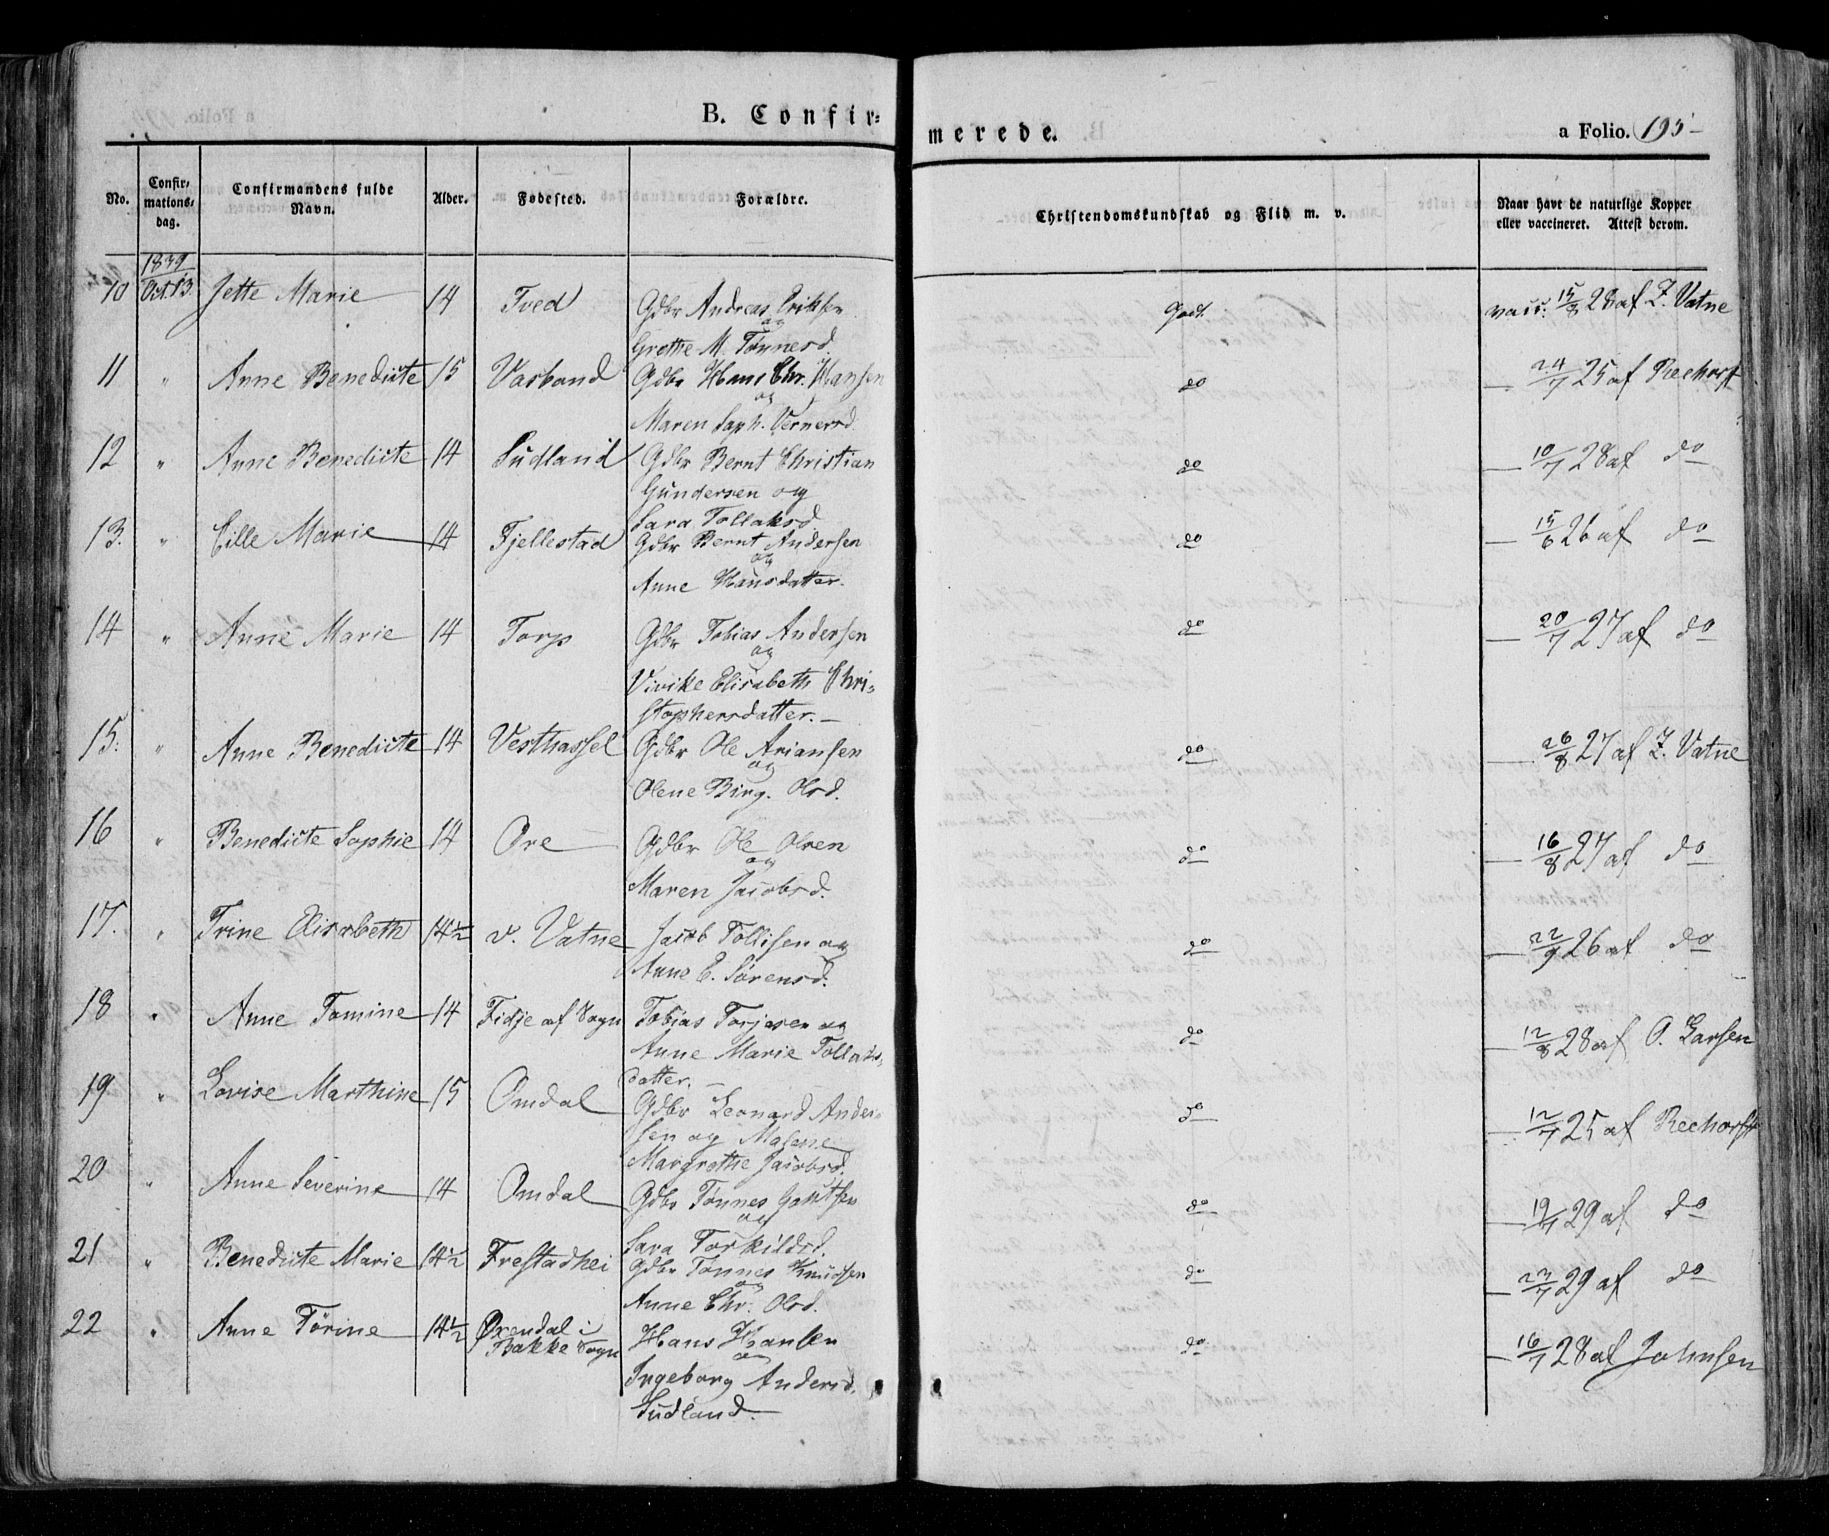 B. Confir=
merede.
a Folio. 195
No.
Confir=
mations=
dag.
Confirmandens fulde
Navn.
Alder.
Fødested.
Forældre.
Christendomskundskab og Flid m. v.
Naar havt de naturlige Kopper
eller vaccineret. Attest derom.
1839
10 Oct. 13. Jette Marie 14 Tved Gdbr Andreas Eriksen Godt. vacc. 15/8 28 af Z. Vatne
og
Grethe M. Tønnesd.
11 " Anne Benedicte 15 Vasband Gdbr Hans Chr. Hansen do — 24/7 25 af Reehorst
og
Maren Soph. Vernersd.
12 " Anne Benedicte 14 Sudland Gdbr Bernt Christian do — 10/7 28 af do
Gundersen og
Sara Tollaksd.
13. " Cille Marie 14 Fjellestad Gdbr Bernt Andersen do — 15/6 26 af do
og
Anne Hansdatter.
14 " Anne Marie 14 Torp Gdbr Tobias Andersen do — 20/7 27 af do
og
Vivike Elisabeth Chri=
stophersdatter. —
15. " Anne Benedicte 14 Vesthassel Gdbr Ole Ariansen do — 26/8 27 af Z. Vatne
og
Olene Birg. Olsd.
16 " Benedicte Sophie 14 Ore Gdbr Ole Olsen do — 16/8 27 af do
og
Maren Jacobsd.
17. " Trine Elisabeth 14½ v. Vatne Jacob Tollisen og do — 22/9 26 af do
Anne E. Sørensd.
18 " Anne Tomine 14 Fidje af Sogn Tobias Torjesen og do — 12/8 28 af O. Larsen
Anne Marie Tollaks=
datter. —
19 " Lovise Marthine 15 Omdal Gdbr Leonard Ander= do — 12/7 25 af Reehorst
sen og Masene
Margrethe Jacobsd.
20 " Anne Severine 14 Omdal Gdbr Tønnes Gautsen do — 19/7 29 af do
og
Sara Torkildsd.
21 " Benedicte Marie 14½ Frestadhei Gdbr Tønnes Knudsen do — 23/7 29 af do
og
Anne Chr. Olsd.
22 " Anne Tørine 14½ Øxendal i Hans Hansen do — 16/7 28 af Johnsen
Bakke Sogn og
Ingeborg Andersd.
Sudland. —